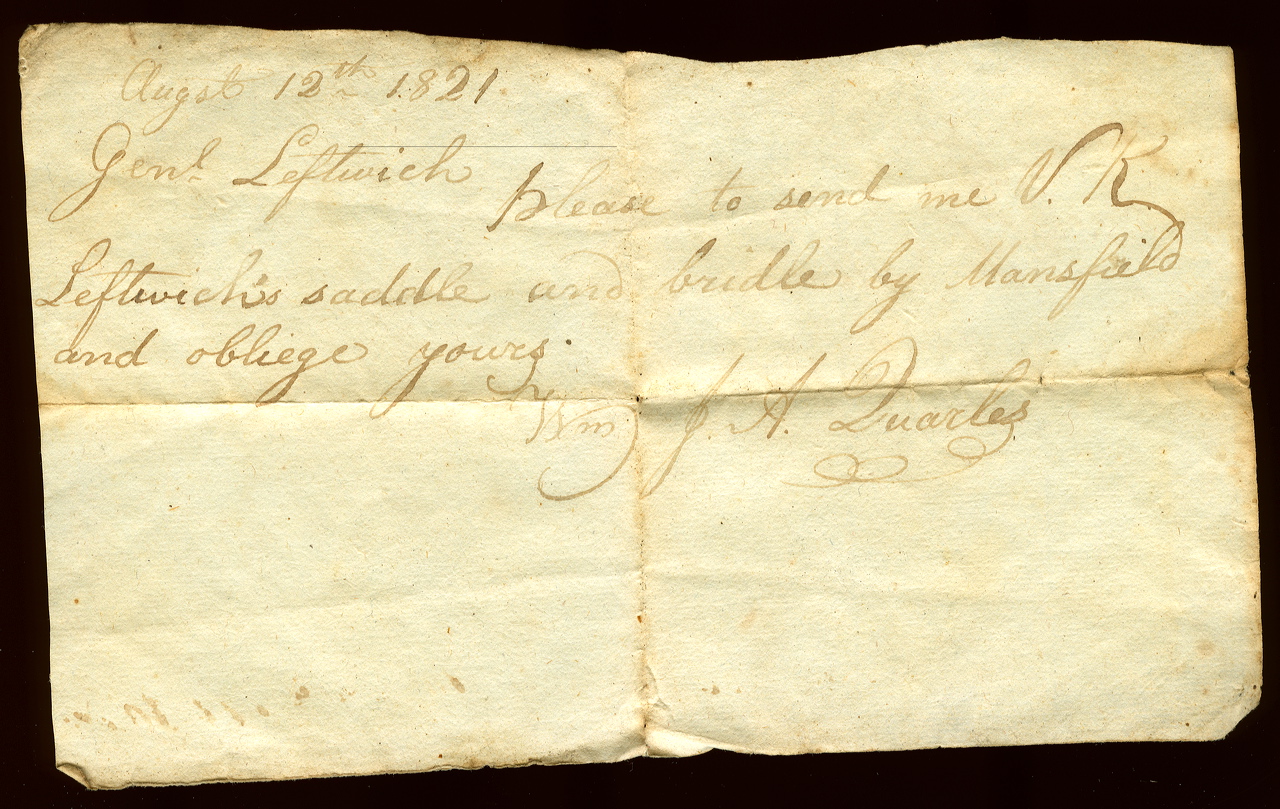 Augst 12th 1821.
Genl. Leftwich
please to send me V. K.
Leftwich's saddle and bridle by Mansfield
and obliege yours.
Wm J. A. Quarles